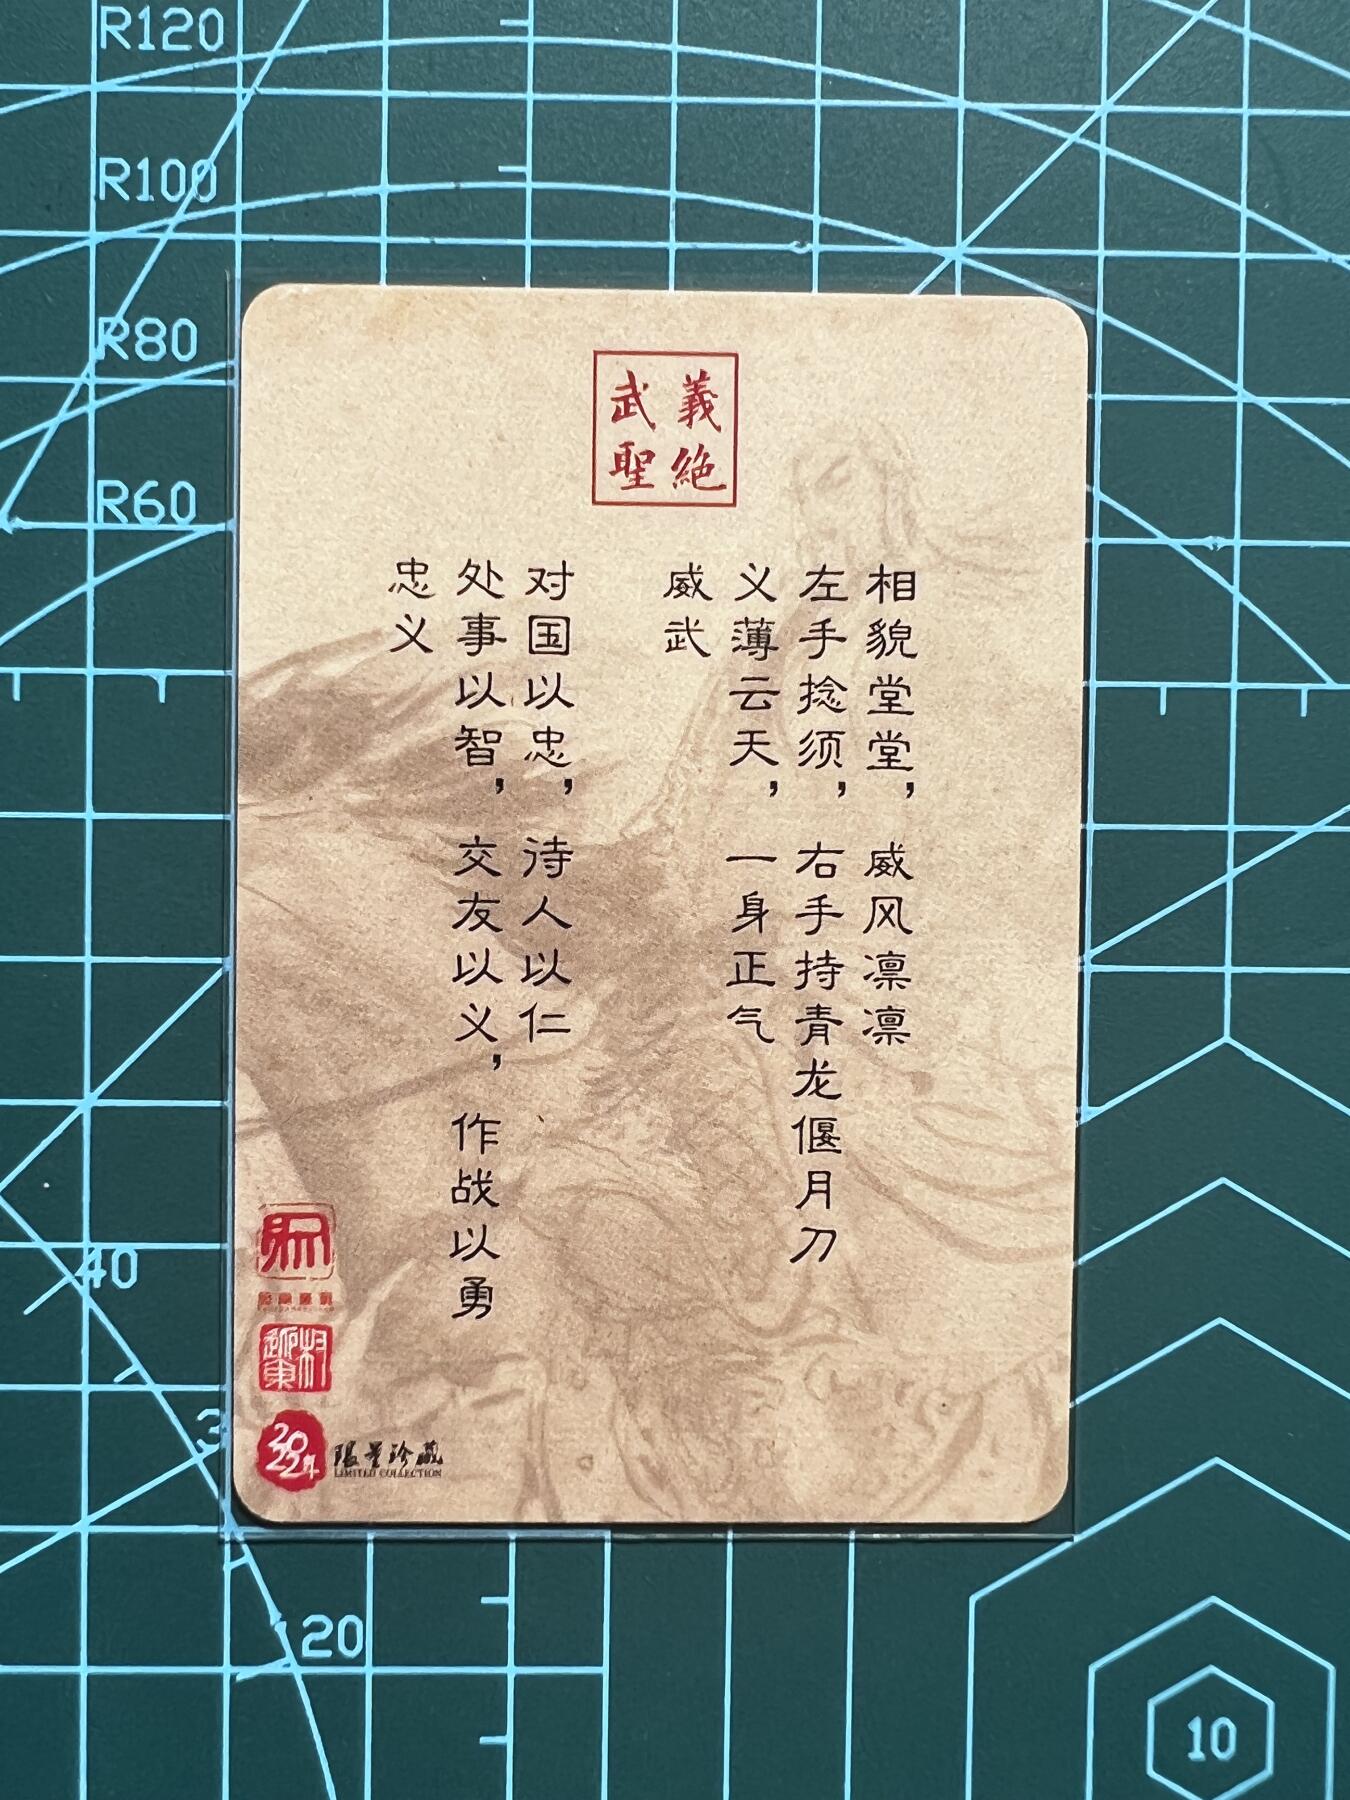 R120
R100
R80
R60
義絶
武聖
相貌堂堂，威风凛凛
左手捻须，右手持青龙偃月刀
义薄云天，一身正气
威武
对国以忠，待人以仁
处事以智，交友以义，作战以勇
忠义
2022年
限量珍藏
LIMITED COLLECTION
40
3
120
10